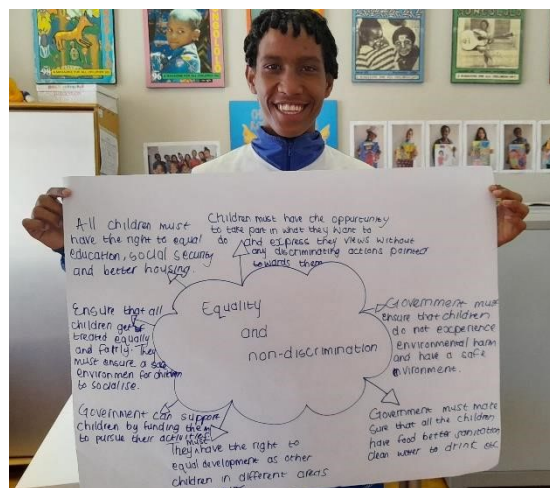 All children must
have the right to equal
education, social security
and better housing.
Children must have the opportunity
to take part in what they want to
do and express they views without
any discriminating actions pointed
towards them
Equality
and
non-discrimination
Ensure that all
children get
treated equally
and fairly. They
must ensure a
environmen for children
to socialise.
Government must
ensure that children
do not excperience
environmental harm
and have a safe
nvironment.
Government can support
children by funding them
to pursue their activities
Government must make
sure that all the children
have food better sanitation
clean water to drink etc
They must have the right to
equal development as other
children in different areas